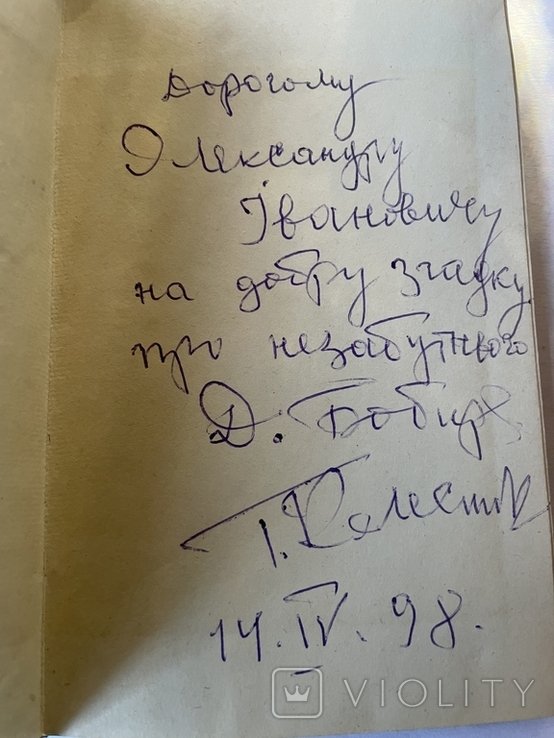 Дорогому
Олександру
Івановичу
на добру згадку
про незабутнього
Д. Бобиря
14.IV.98.
VIOLITY